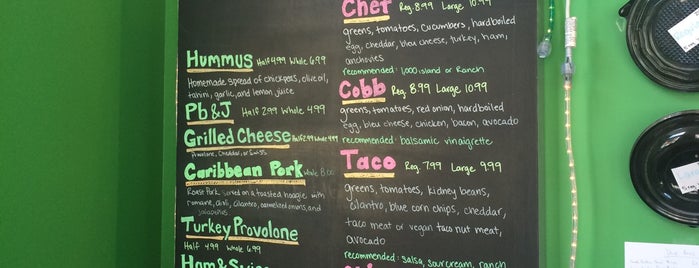 Hummus Half 4.99 Whole 6.99
Homemade spread of chickpeas, olive oil,
tahini, garlic, and lemon juice
Pb&J Half 2.99 Whole 4.99
Grilled Cheese Half 2.99 Whole 4.99
Provolone, Cheddar, or Swiss
Caribbean Pork Whole 8.00
Roast Pork served on a toasted hoagie with
romaine, aioli, cilantro, caramelized onions, and
jalapeños.
Turkey Provolone
Half 4.99 Whole 6.99
Ham & Swiss
Chef Reg. 8.99 Large 10.99
greens, tomatoes, cucumbers, hardboiled
egg, cheddar, bleu cheese, turkey, ham,
anchovies
recommended: 1,000 island or Ranch
Cobb Reg. 8.99 Large 10.99
greens, tomatoes, red onion, hardboiled
egg, bleu cheese, chicken, bacon, avocado
recommended: balsamic vinaigrette
Taco Reg. 7.99 Large 9.99
greens, tomatoes, kidney beans,
cilantro, blue corn chips, cheddar,
taco meat or vegan taco nut meat,
avocado
recommended: salsa, sour cream, ranch